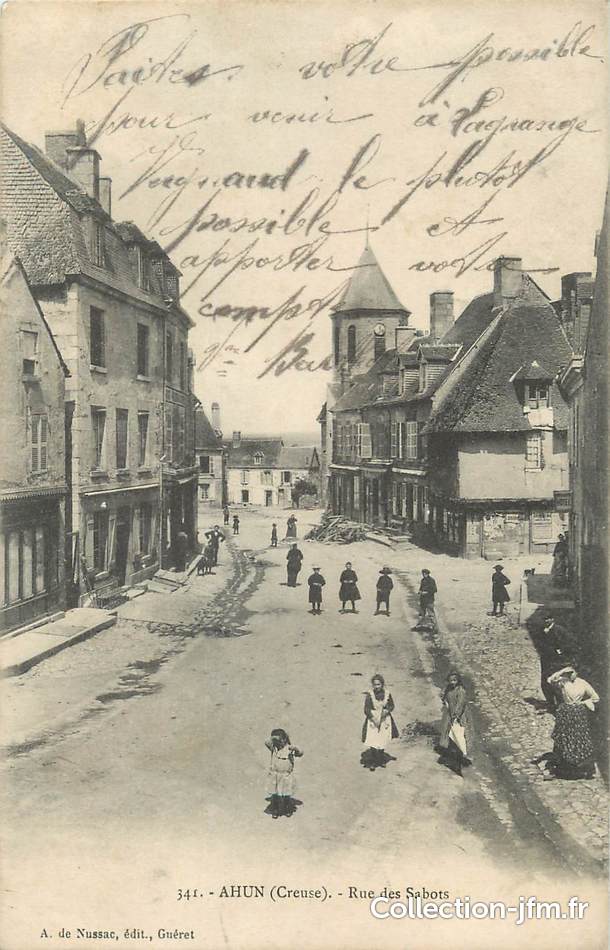 Faites votre possible
pour venir à Lagrange
le plutot
possible et
apporter votre
compt
341. - AHUN (Creuse). - Rue des Sabots
A. de Nussac, édit., Guéret
Collection-jfm.fr